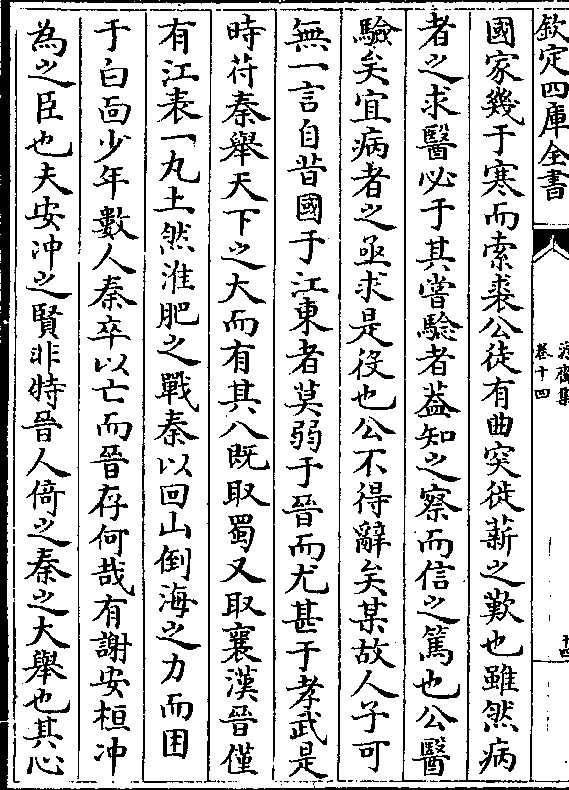 欽定四庫全書
卷十四
國家幾于寒而索裘公徒有曲突徙薪之歎也雖然病
者之求醫必于其嘗驗者葢知之察而信之篤也公醫
驗矣宜病者之亟求是役也公不得辭矣某故人子可
無一言自昔國于江東者莫弱于晉而尤甚于孝武是
時苻秦舉天下之大而有其八既取蜀又取襄漢晉僅
有江表一丸土然淮肥之戰秦以回山倒海之力而困
于白面少年數人秦卒以亡而晉存何哉有謝安桓冲
為之臣也夫安冲之賢非特晉人倚之秦之大舉也其心